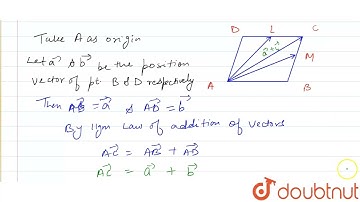 Take A as origin
Let a⃗ & b⃗ be the position
vector of pt. B & D respectively
Then AB⃗ = a⃗ & AD⃗ = b⃗
By llgm Law of addition of vectors
AC⃗ = AB⃗ + AD⃗
AC⃗ = a⃗ + b⃗
D L C
a⃗+b⃗
M
A B
doubtnut